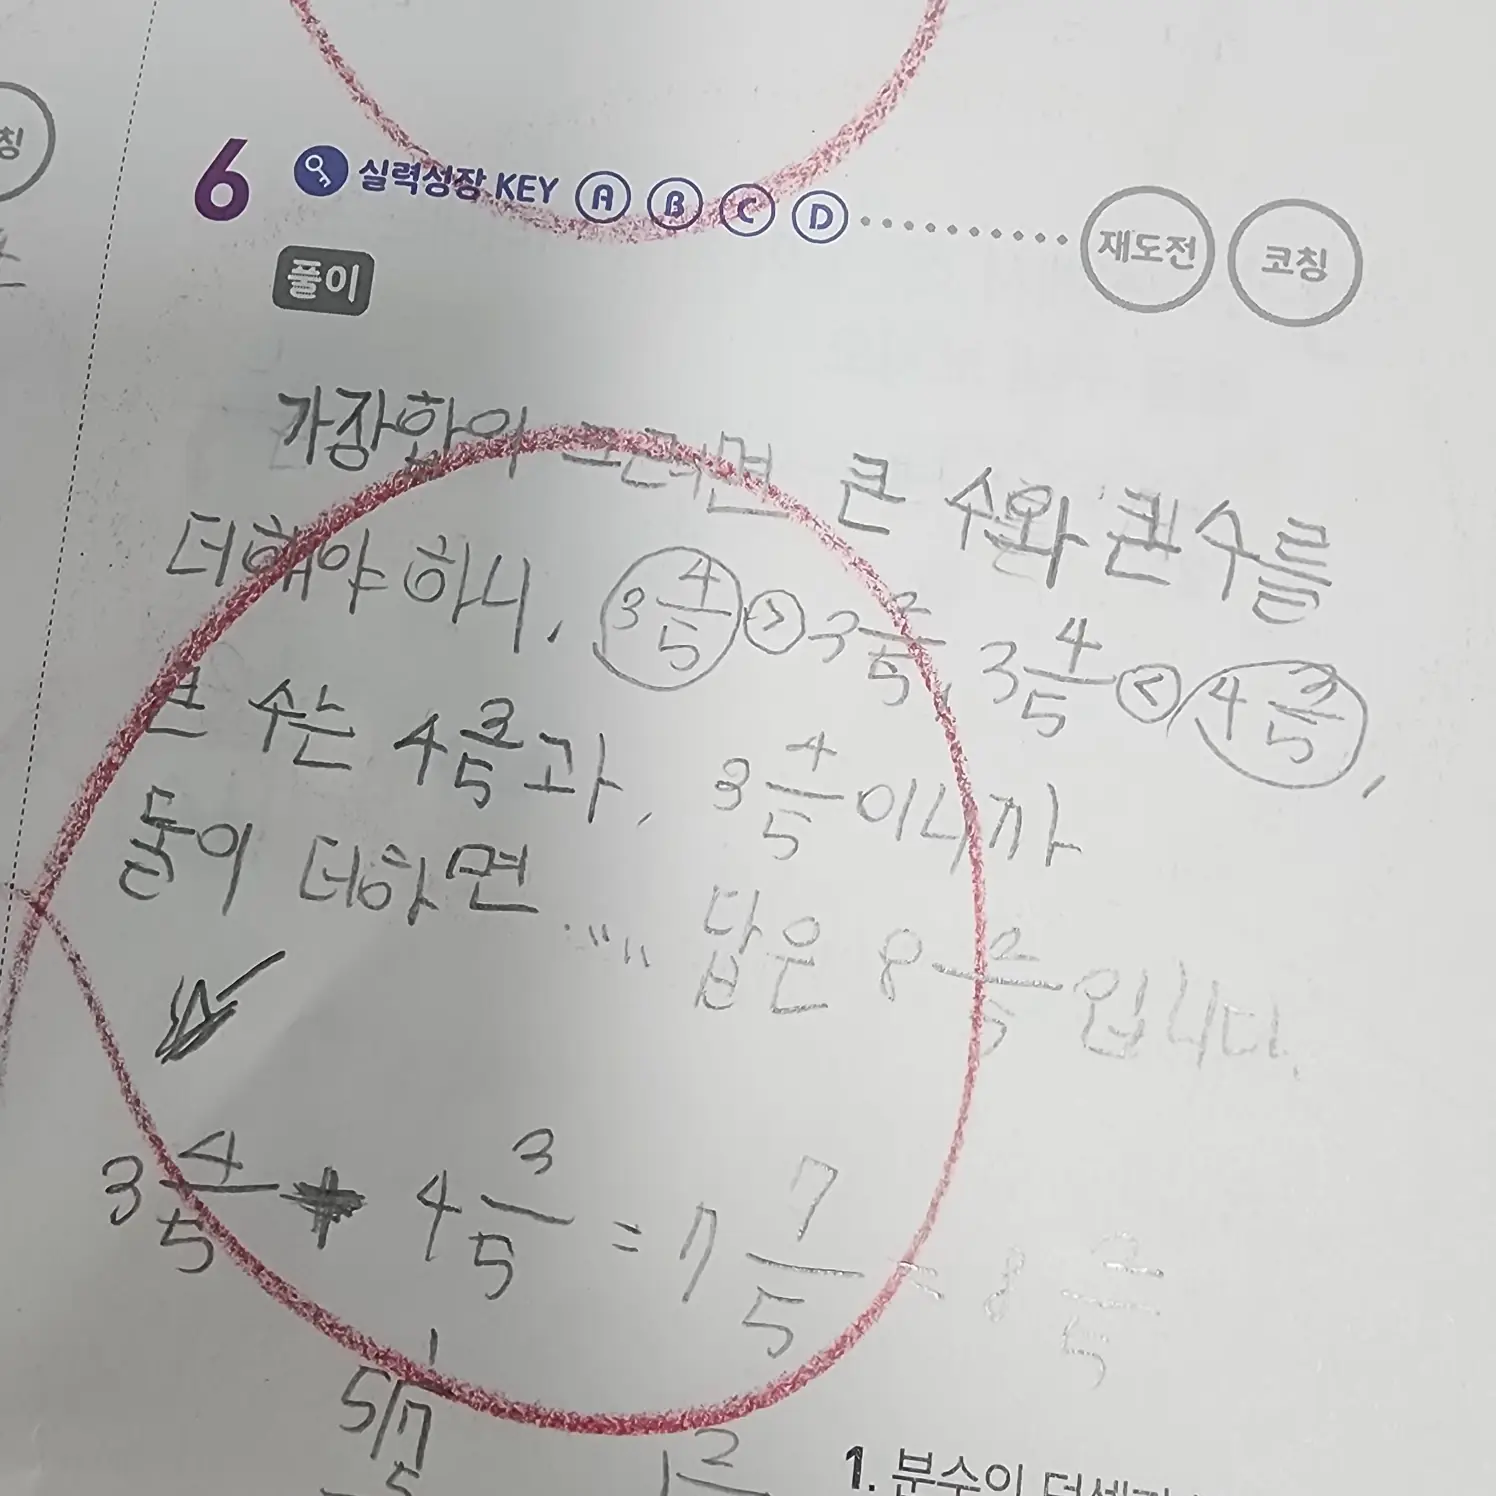 칭
6 실력성장 KEY A B C D 재도전 코칭
풀이
가장한의 그러면 큰 수와 큰수를
더해야 하니, 3 4/5 > 3 2/5, 3 4/5 < 4 3/5,
큰 수는 4 3/5과, 3 4/5이니까
둘이 더하면 ..... 답은 8 2/5입니다.
3 4/5 + 4 3/5 = 7 7/5 = 8 2/5
1
5/7
5
1 2
1. 분수의 덧셈과